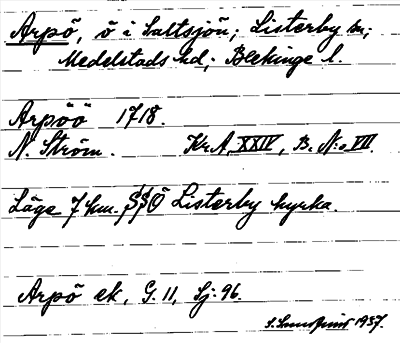 Arpö, ö i Saltsjön; Listerby sn;
Medelstads hd; Blekinge l.
Arpöö 1718.
N. Ström. Kr.A, XXIV, B. N:o VII.
Läge 7 km. SSÖ Listerby kyrka.
Arpö ek, G. 11, Sj: 96.
1937.